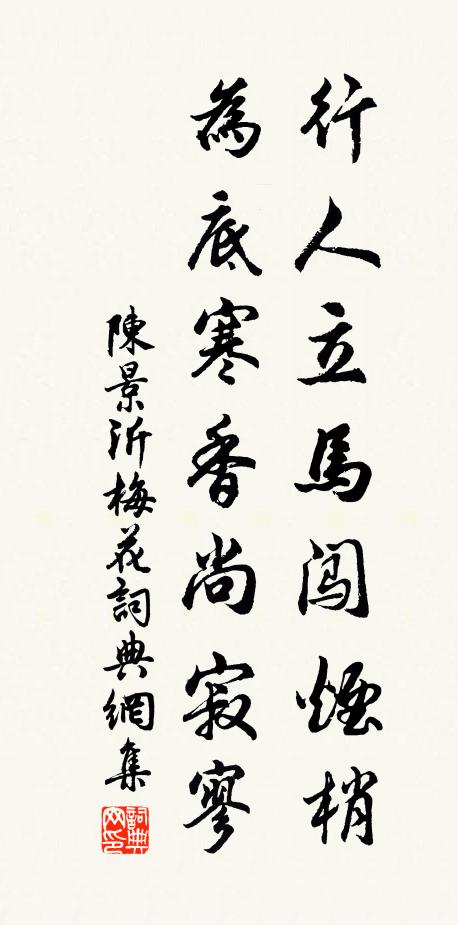 行人立馬闖煙梢
為底寒香尚寂寥
陳景沂梅花詞典網集
詞典网印